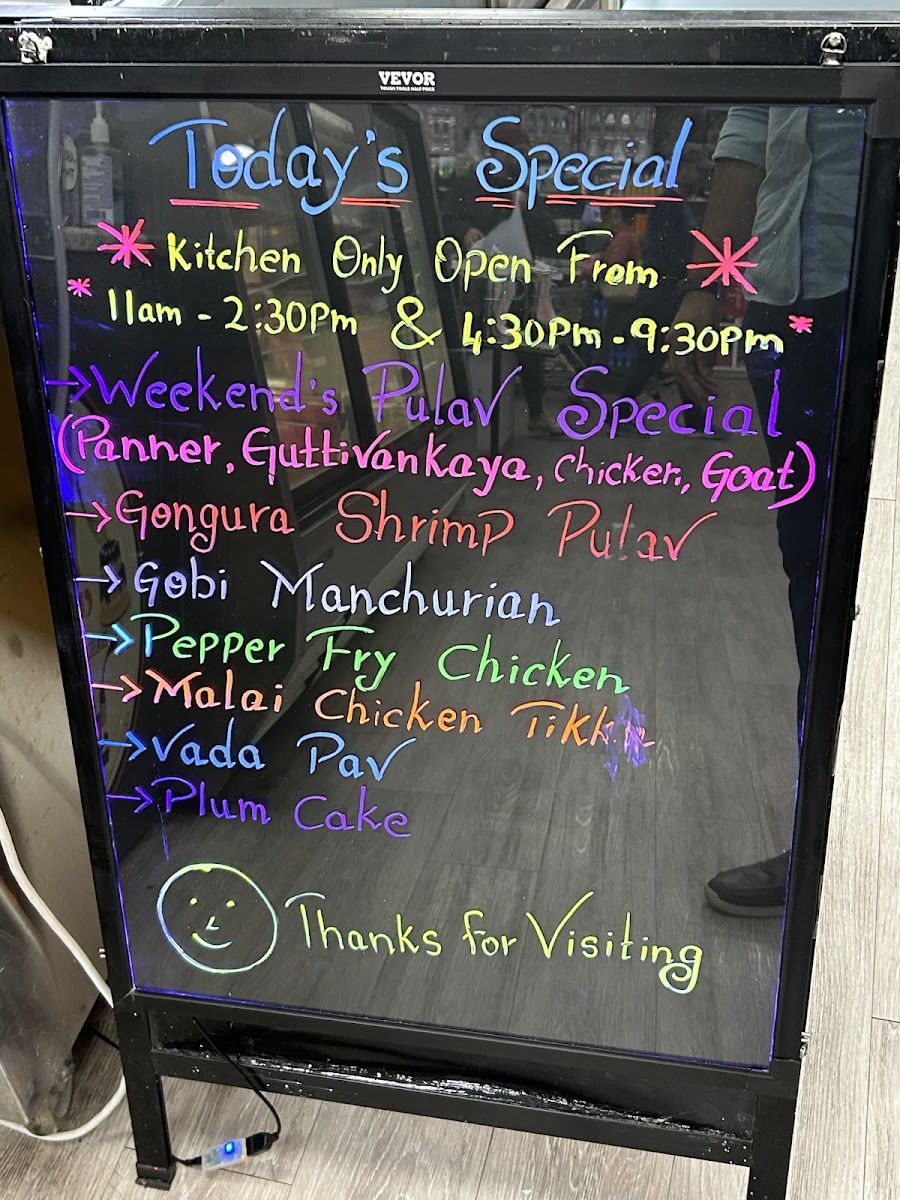 VEVOR
TOUGH TOOLS HALF PRICE
Today's Special
* Kitchen Only Open From *
* 11am - 2:30Pm & 4:30Pm - 9:30pm *
→ Weekend's Pulav Special
(Panner, Guttivankaya, Chicken, Goat)
→ Gongura Shrimp Pulav
→ Gobi Manchurian
→ Pepper Fry Chicken
→ Malai Chicken Tikka
→ Vada Pav
→ Plum Cake
Thanks for Visiting